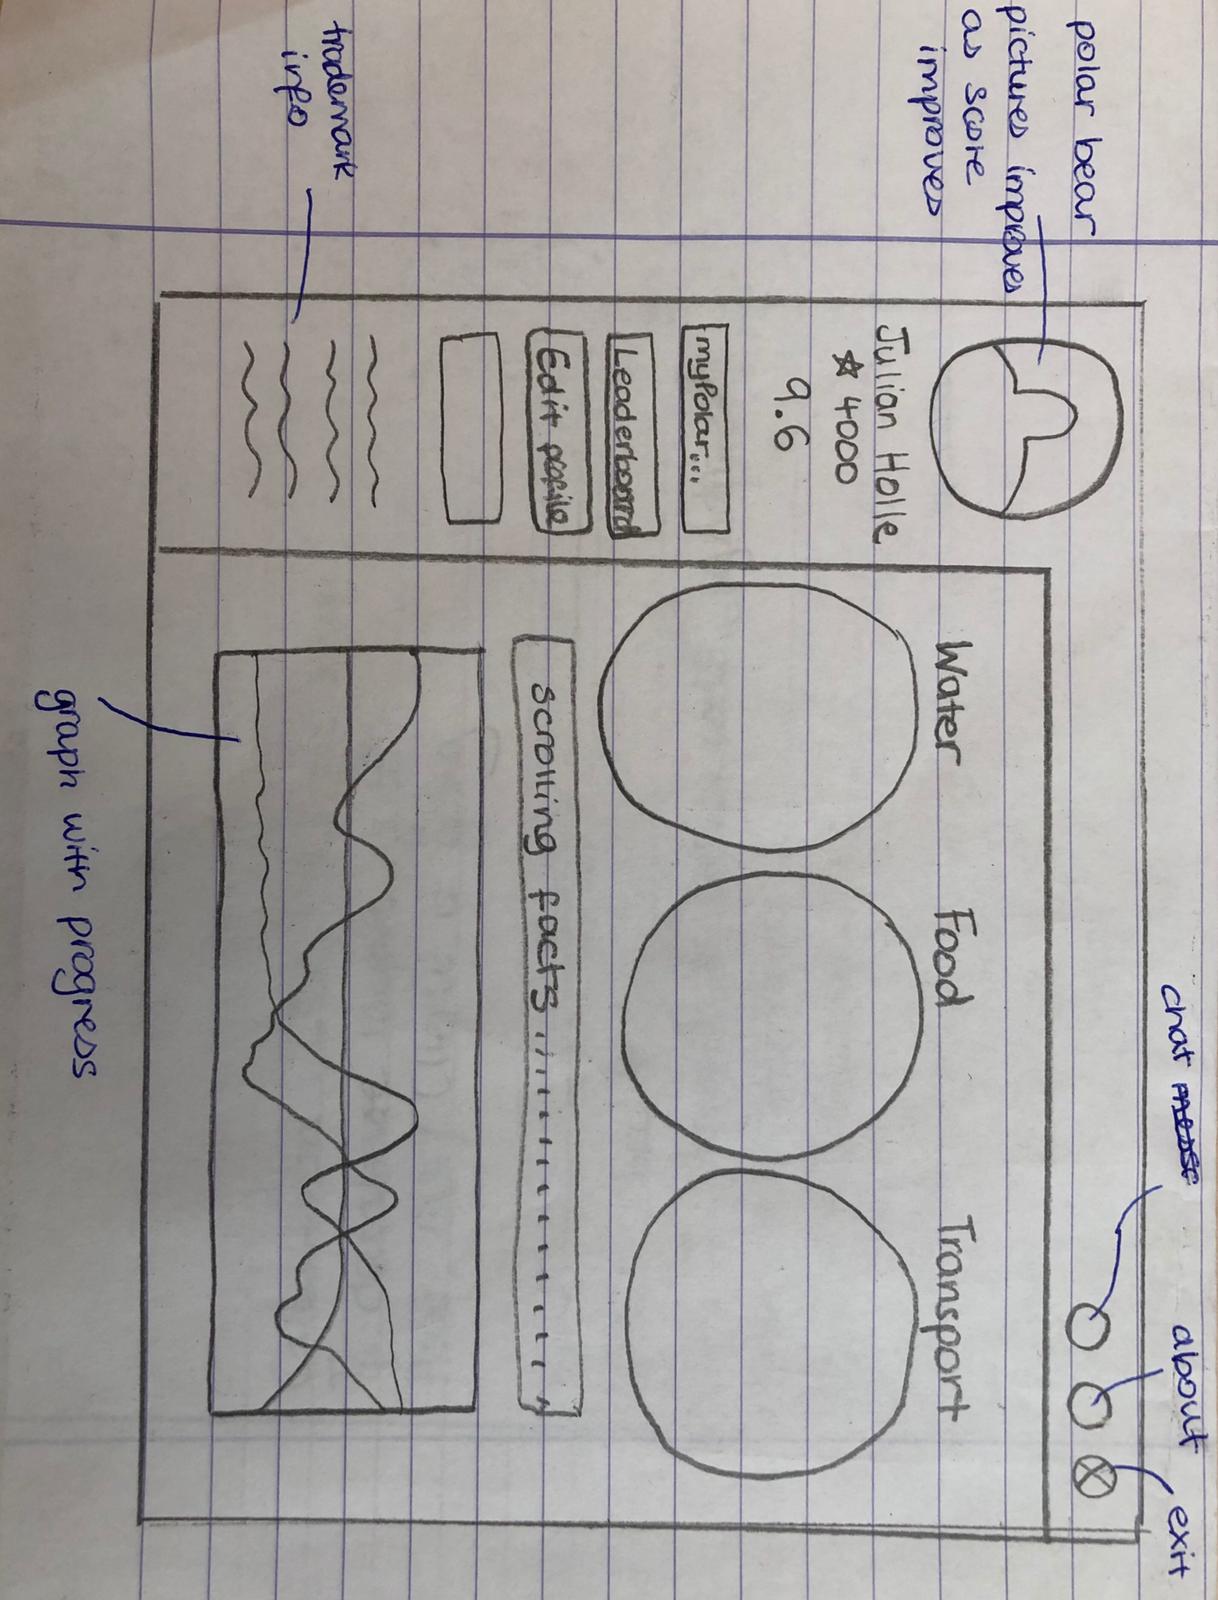 polar bear
pictures improves
as score
improves
trademark
info
chat
about
exit
Julian Holle
☆ 4000
9.6
myPolar...
Leaderboard
Edit profile
Water
Food
Transport
scrolling facts......
graph with progress